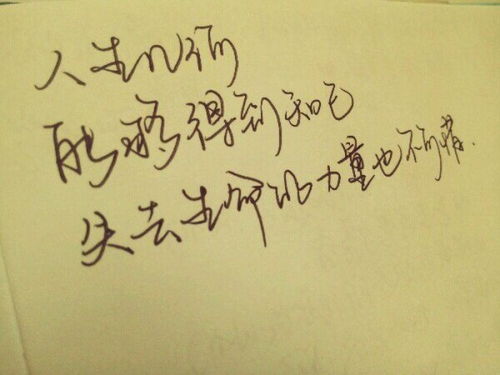 人生几何
能够得到知己
失去生命的力量也不可惜.